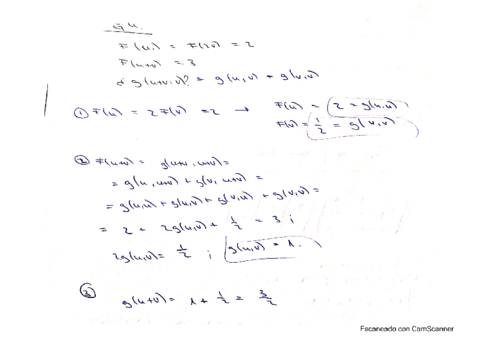 F(u) = F(2v) = 2
F(u+v) = 3
g(u+v,v)? = g(u,v) + g(v,v)
① F(u) = 2 F(v) = 2 → F(u) = 2 = g(u,u)
F(v) = 1/2 = g(v,v)
② F(u+v) = g(u+v, u+v) =
= g(u, u+v) + g(v, u+v) =
= g(u,u) + g(u,v) + g(v,u) + g(v,v) =
= 2 + 2g(u,v) + 1/2 = 3 ;
2g(u,v) = 1/2 ; g(u,v) = 1.
③ g(u+v) = 1 + 1/2 = 3/2
Escaneado con CamScanner